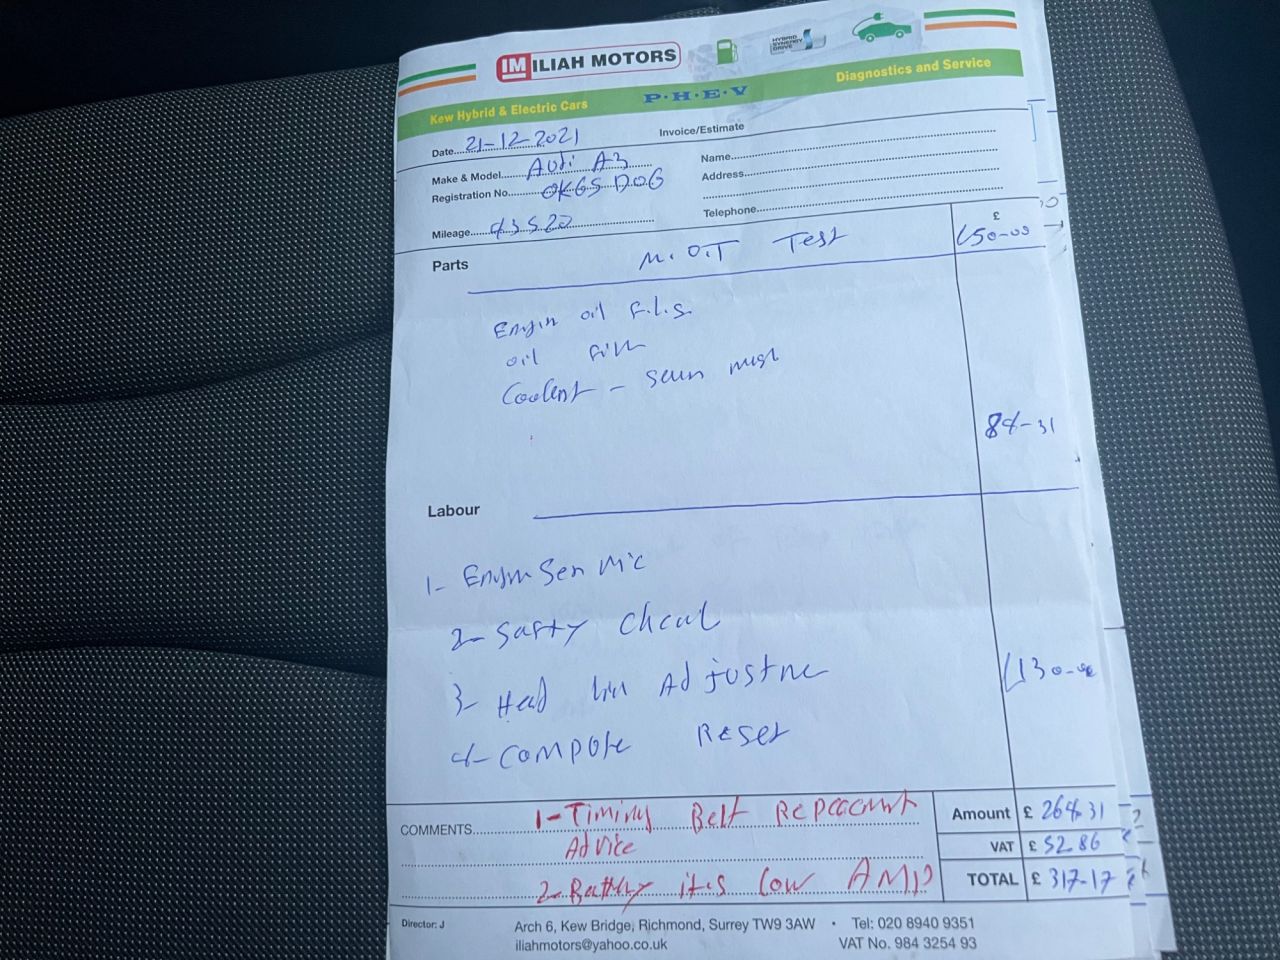 IM ILIAH MOTORS
HYBRID SYNERGY DRIVE
Kew Hybrid & Electric Cars P·H·E·V Diagnostics and Service
Date 21-12-2021 Invoice/Estimate
Make & Model Audi A3 Name
Registration No. OK65 DOG Address
Mileage 43520 Telephone
£
Parts M.O.T Test £50-00
Engin oil F.L.S.
oil
Coolent -
84-31
Labour
1-
2- Safty
3- Head Adjustme
£130-00
4- Compute Reset
COMMENTS 1- Timing Belt Amount £ 264-31
Advice VAT £ 52 86
2- Battery it.s Low AMP TOTAL £ 317-17
Director: J Arch 6, Kew Bridge, Richmond, Surrey TW9 3AW • Tel: 020 8940 9351
iliahmotors@yahoo.co.uk VAT No. 984 3254 93